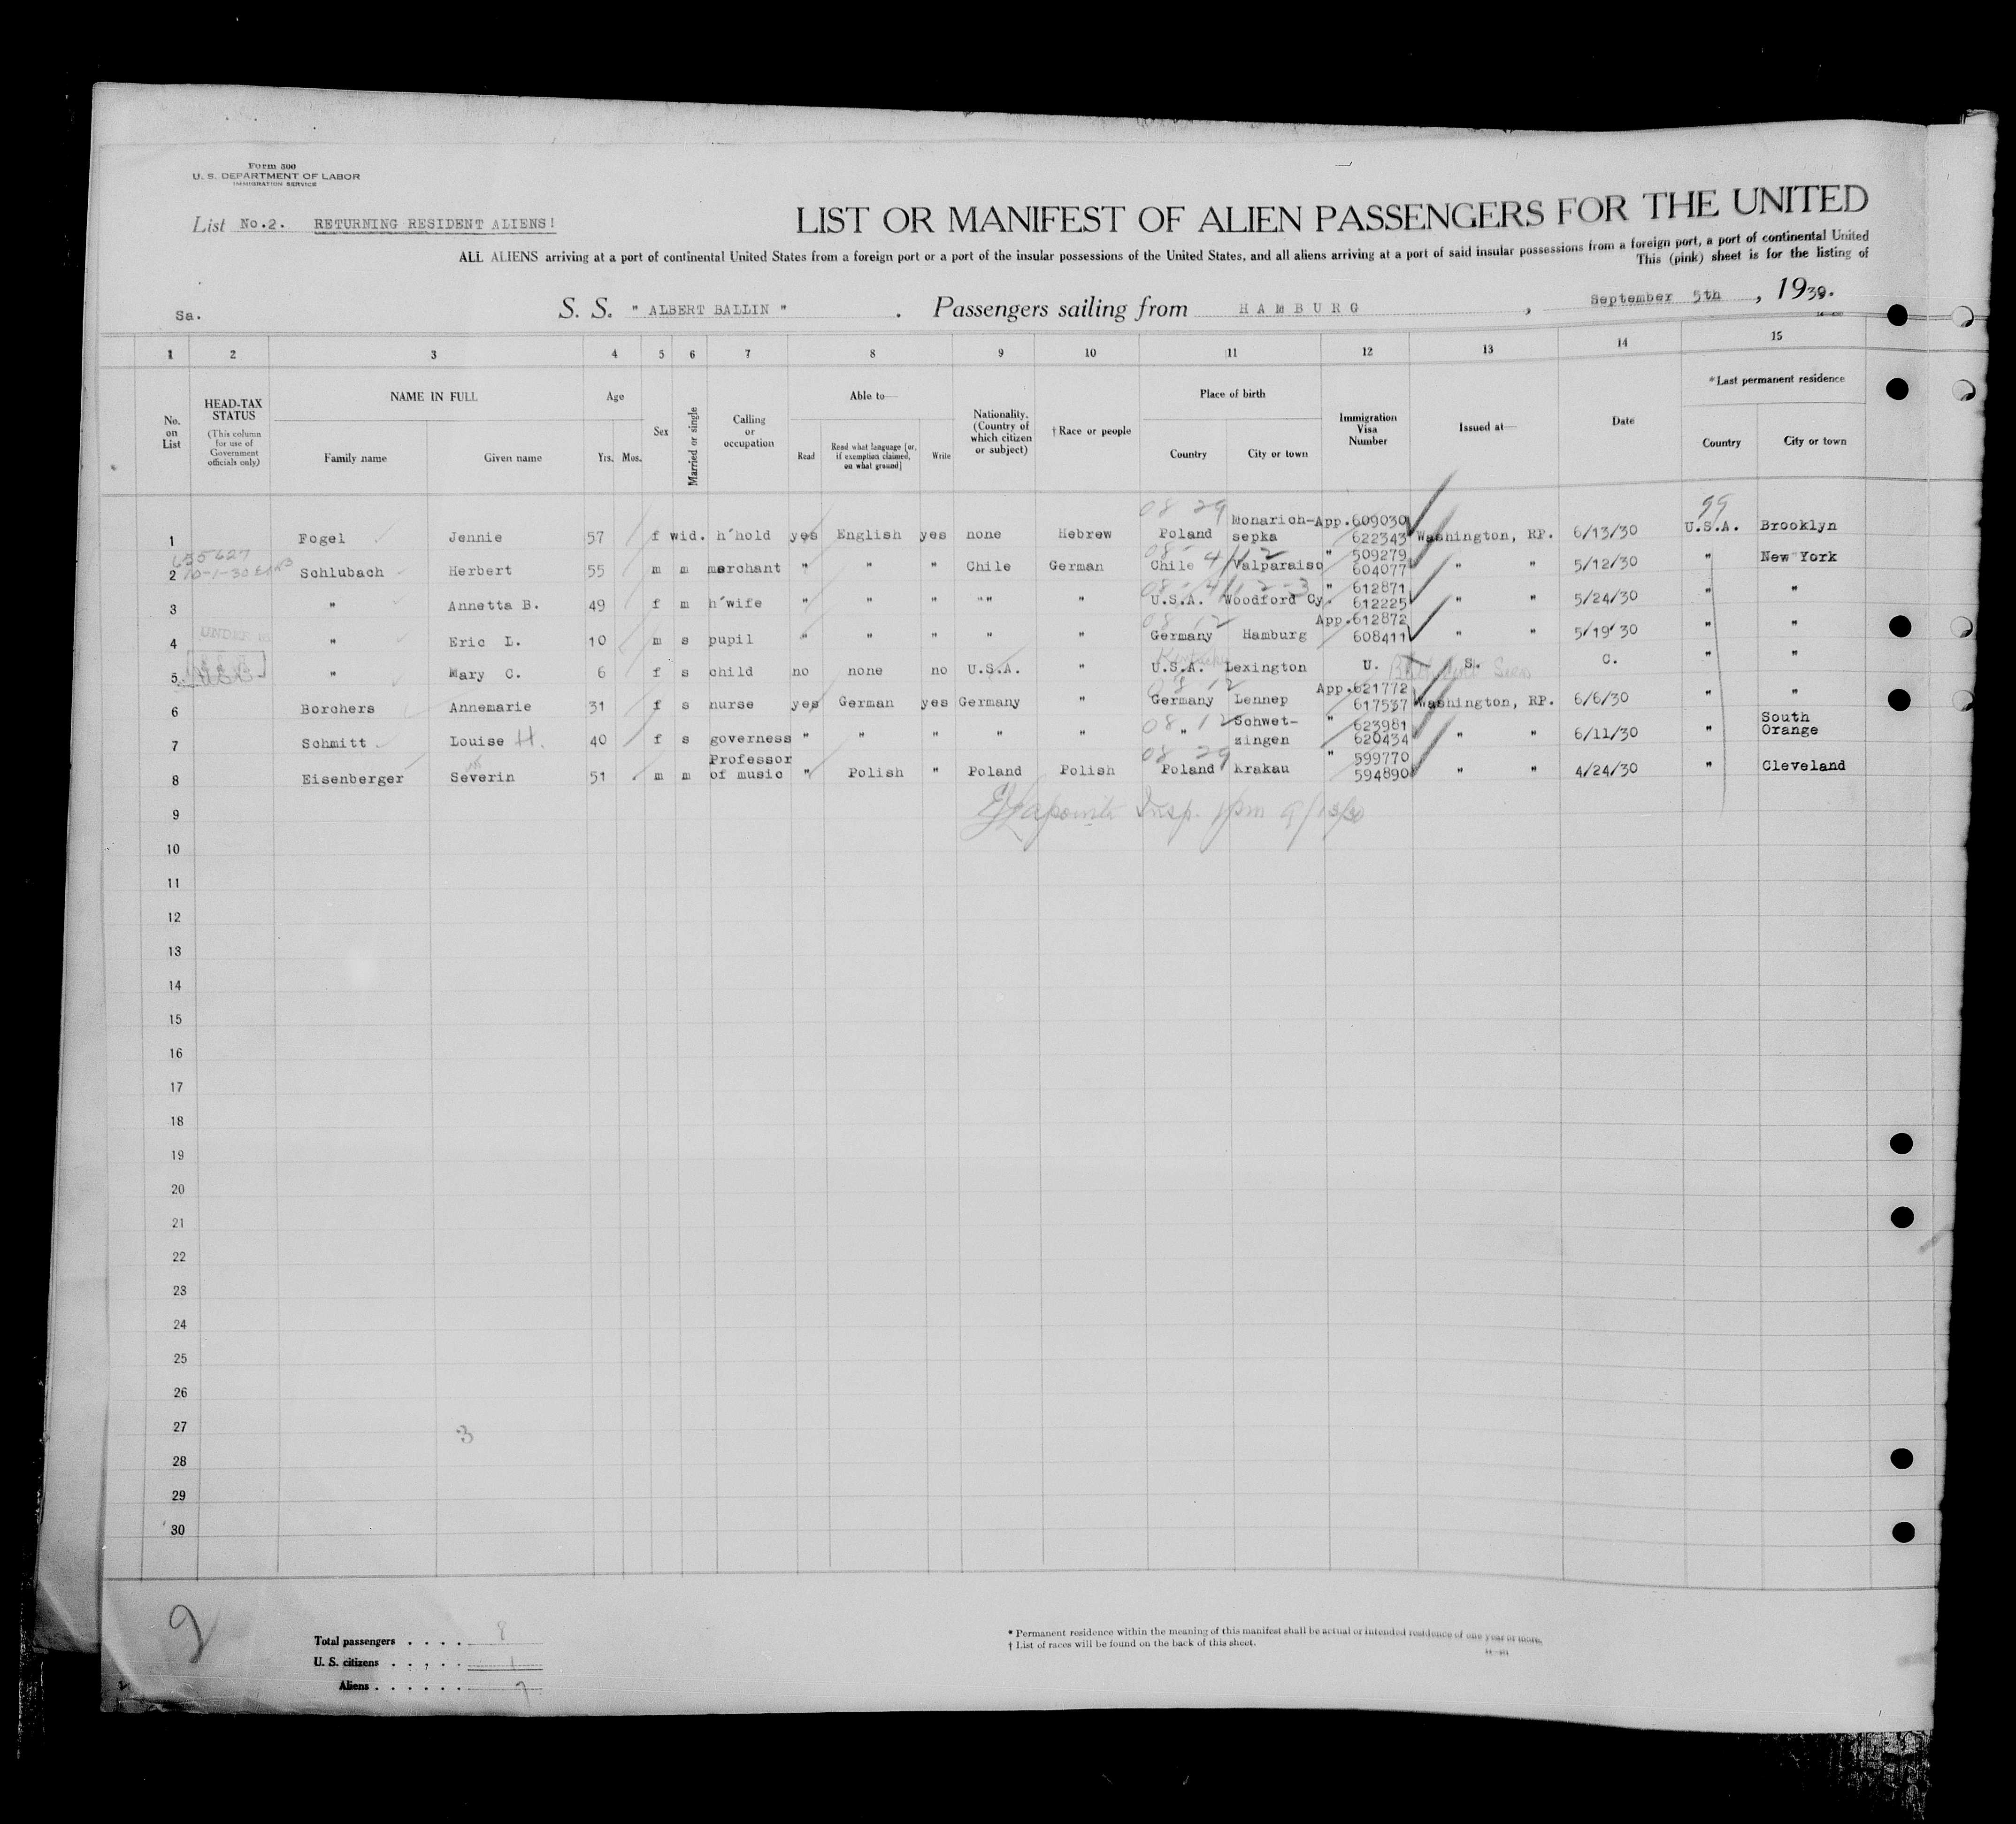 Form 500
U. S. DEPARTMENT OF LABOR
IMMIGRATION SERVICE
List No.2. RETURNING RESIDENT ALIENS!
LIST OR MANIFEST OF ALIEN PASSENGERS FOR THE UNITED
ALL ALIENS arriving at a port of continental United States from a foreign port or a port of the insular possessions of the United States, and all aliens arriving at a port of said insular possessions from a foreign port, a port of continental United
This (pink) sheet is for the listing of
Sa. S. S. " ALBERT BALLIN " . Passengers sailing from HAMBURG , September 5th , 1930.
1 2 3 4 5 6 7 8 9 10 11 12 13 14 15
No. on List
HEAD-TAX STATUS
(This column for use of Government officials only)
NAME IN FULL
Family name Given name
Age
Yrs. Mos.
Sex
Married or single
Calling or occupation
Able to—
Read
Read what language [or, if exemption claimed, on what ground]
Write
Nationality. (Country of which citizen or subject)
†Race or people
Place of birth
Country City or town
Immigration Visa Number
Issued at—
Date
*Last permanent residence
Country City or town
08 29 99
1 Fogel Jennie 57 f wid. h'hold yes English yes none Hebrew Poland Monarich-sepka App.609030 622343 Washington, RP. 6/13/30 U.S.A. Brooklyn
655627
10-1-30
2 Schlubach Herbert 55 m m merchant " " " Chile German Chile Valparaiso " 509279 604077 " " 5/12/30 " New York
3 " Annetta B. 49 f m h'wife " " " "" " U.S.A. Woodford Cy. " 612871 612225 " " 5/24/30 " "
UNDER 16
08 12
4 " Eric L. 10 m s pupil " " " " " Germany Hamburg App.612872 608411 " " 5/19/30 " "
Kentucky
5 " Mary C. 6 f s child no none no U.S.A. " U.S.A. Lexington U. S. C. " "
08 12
6 Borchers Annemarie 31 f s nurse yes German yes Germany " Germany Lennep App.621772 617537 Washington, RP. 6/6/30 " "
08 12
7 Schmitt Louise H. 40 f s governess " " " " " " Schwet-zingen " 623981 620434 " " 6/11/30 " South Orange
08 29
8 Eisenberger Severin 51 m m Professor of music " Polish " Poland Polish Poland Krakau " 599770 594890 " " 4/24/30 " Cleveland
9 Insp. 9/13/30
10
11
12
13
14
15
16
17
18
19
20
21
22
23
24
25
26
27
3
28
29
30
2
Total passengers . . . . 8
U. S. citizens . . . . . 1
Aliens . . . . . . 7
* Permanent residence within the meaning of this manifest shall be actual or intended residence of one year or more.
† List of races will be found on the back of this sheet.